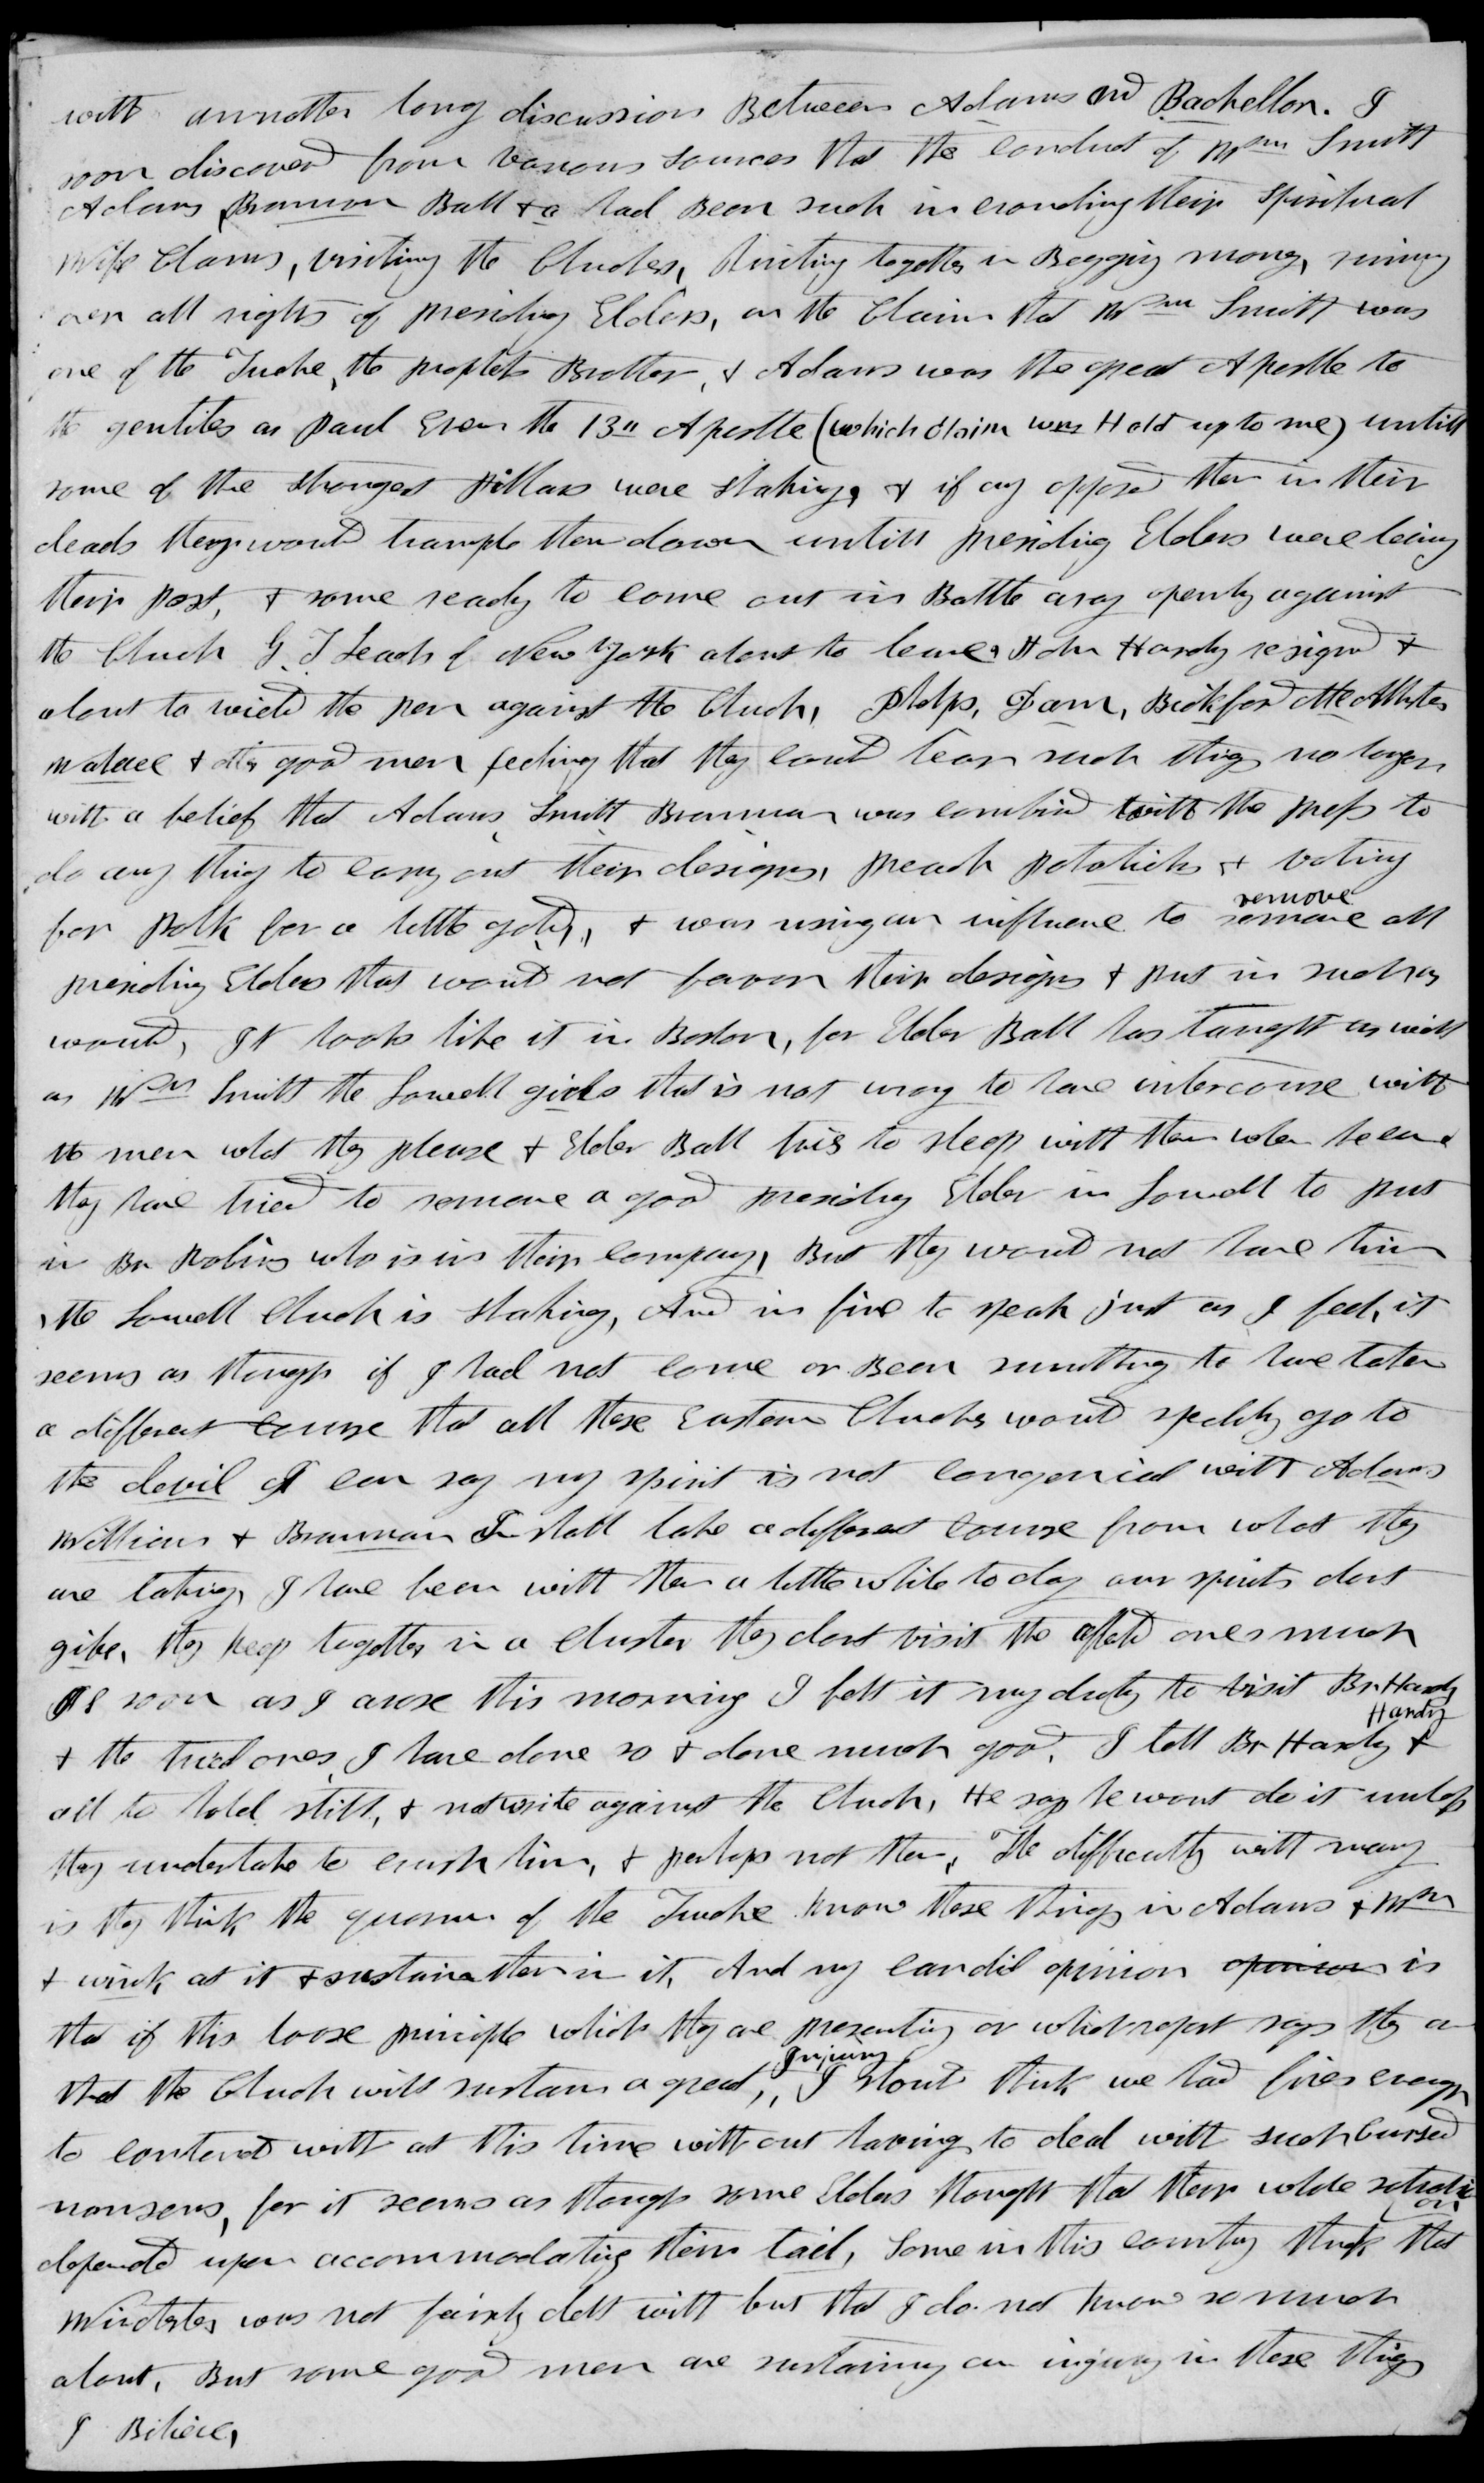 with annother long discussion Between Adams and Bachellor. I
soon discoverd from various sources that the conduct of Wm Smith
Adams, Brannan Ball &c had Been such in crouding their spiritual
wife Claims, visiting the Churches, Uniting together in Begging money, runing
over all rights of presiding Elders, on the Claim that Wm Smith was
one of the Twelve, the prophets Brother, & Adams was the great Apostle to
the gentiles as Paul Even the 13th Apostle (which claim was Held up to me) untill
some of the strongest pillars were shaking, & if any opposed them in their
deeds they would trample them down untill presiding Elders were leaving
their post, & some ready to come out in Battle aray openly against
the Church G. T Leach of New York about to leave, John Hardy resigned &
about to wield the pen against the Church, Phelps, Dam, Bickford McAllister
Wallace & other good men feeling that they could bear such things no longer
with a belief that Adams, Smith Brannan was combined with the press to
do any thing to carry out their designs, preach polaticks & voting
for Polk for a little gold, & was using an influence to remove remove all
presiding Elders that would not favor their designs & put in such as
would, It looks like it in Boston, for Elder Ball has taught as well
as Wm Smith the Lowell girls that is not wrong to have intercourse with
the men what they please & Elder Ball tries to sleep with them when he can
they have tried to remove a good presiding Elder in Lowell to put
in Br Robins who is in their company, But they would not have him
, the Lowell Church is shaking, And in fine to speak just as I feel, it
seems as though if I had not come or Been sumthing to have taken
a different course that all these Eastern Churches would spedily go to
the devil I can say my spirit is not congenial with Adams
William & Brannan I shall take a different course from what they
are taking, I have been with them a little while to day our spirits dont
gibe, they keep together in a cluster they dont visit the aflicted ones much
As soon as I arose this morning I felt it my duty to visit Br. Hardy
& the tried ones, I have done so & done much good. I tell Br Hardy Hardy &
all to hold still, & not write against the Church, He says he wont do it unless
they undertake to crush him, & perhaps not then, The difficulty with many
is they think the quorum of the Twelve know these things in Adams & Wm
& wink at it & sustain them in it, And my candid opinion opinion is
that if this loose principle which they are presenting or which report says they are
that the Church will sustain a great, Injury I should think we had fires enough
to contend with at this time without having to deal with such cursed
nonsens, for it seems as though some Elders thought that their whole salvation
depended upon accommodating their tail, Some in this country think that
Winchester was not fairly delt with but that I do not know so much
about, But some good men are sustaining an injury in these things
I Believe,